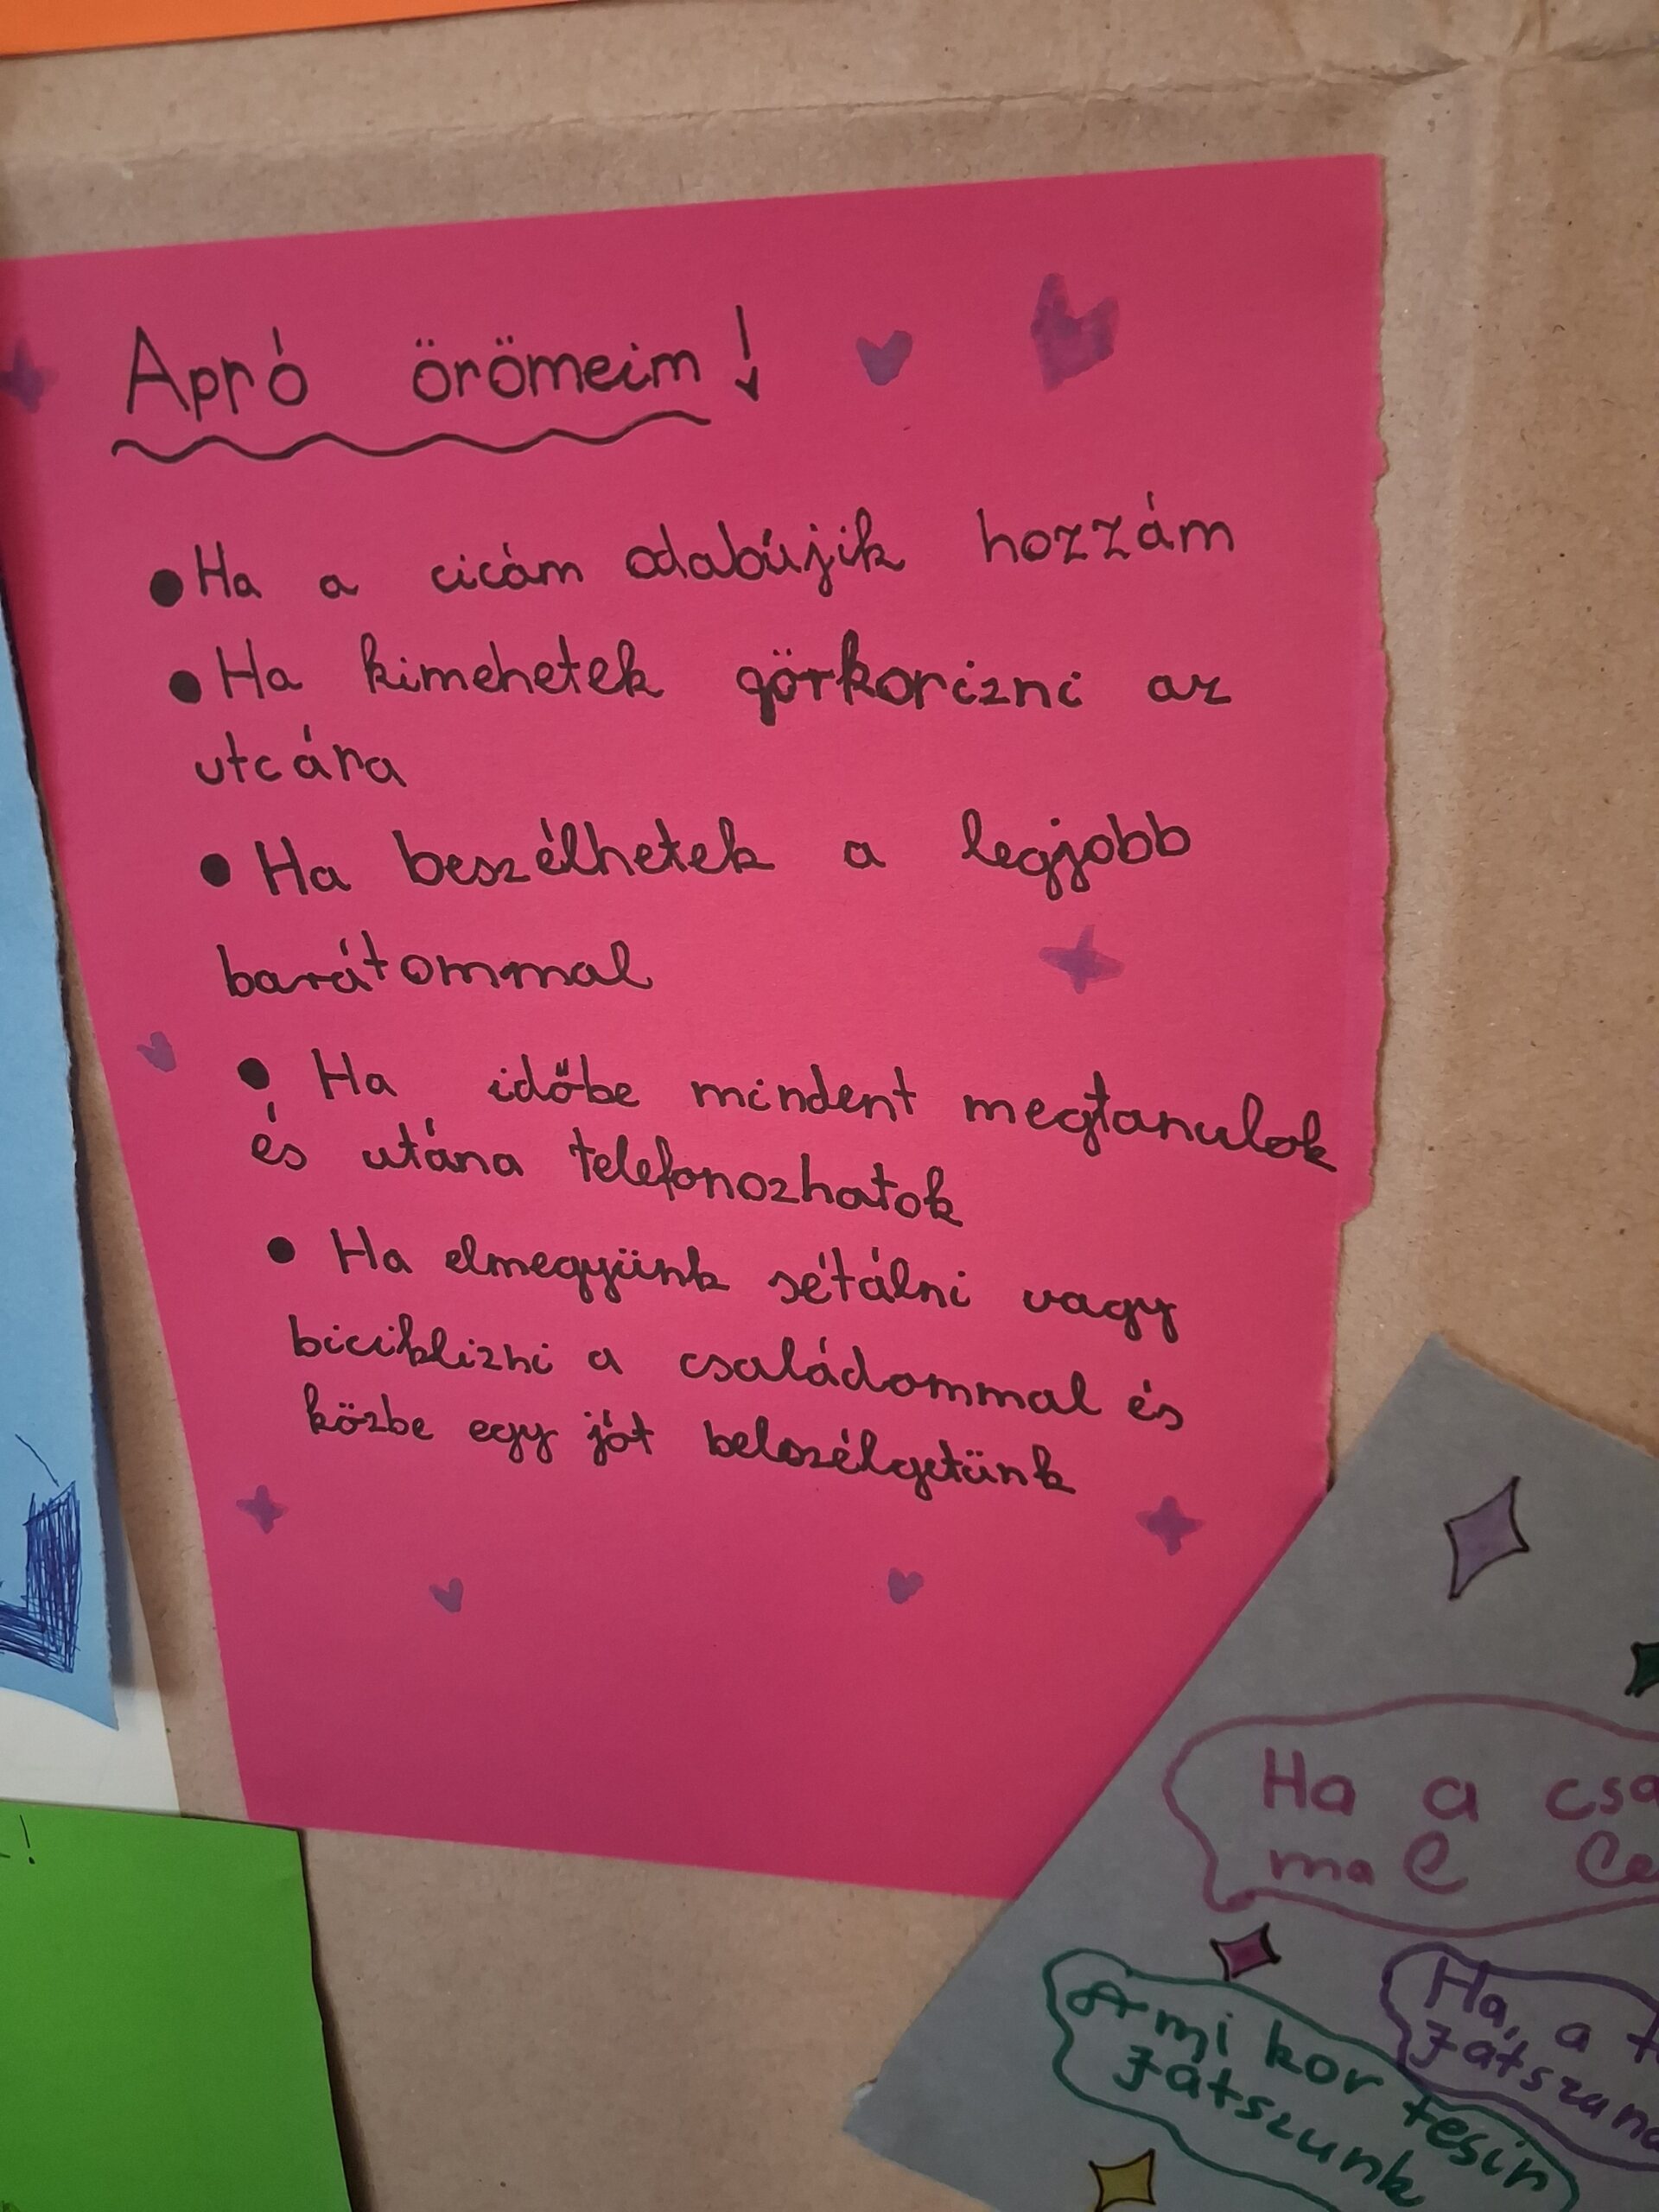 Apró örömeim!
• Ha a cicám odabújik hozzám
• Ha kimehetek görkorizni az
utcára
• Ha beszélhetek a legjobb
barátommal
• Ha időbe mindent megtanulok
és utána telefonozhatok
• Ha elmegyünk sétálni vagy
biciklizni a családommal és
közbe egy jót belszélgetünk
Ha a csa
mal le
Ha, a t
játszunk
Ami kor tesin
játszunk